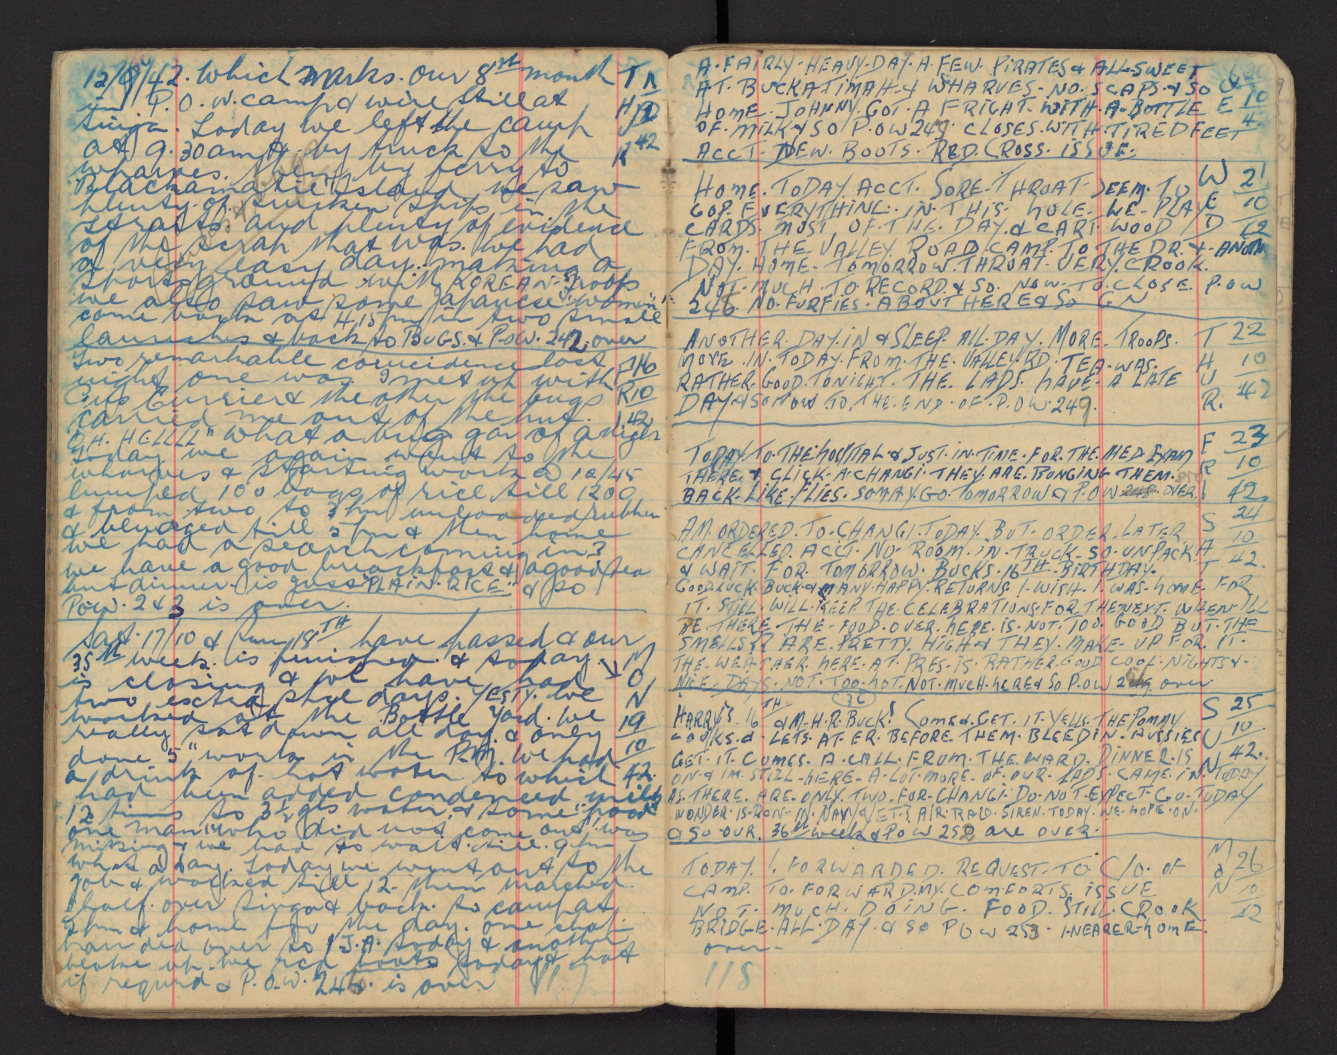 12/9/42. which marks our 8th month
in P.O.W. camp & wire still at
Singa. Today we left the camp
at 9.30am & by truck to the
wharves. by ferry to
Blackamatie Island we saw
plenty of sunken ships in the
straits. and plenty of evidence
of the scrap that was. We had
a very easy day making a
sportsground with KOREAN Troops
we also saw some Japanese women
come back at 4/15 pm in two small
launches & back to BUGS. & P.O.W. 242 over
Two remarkable coincidence last
night one was I met up with
Gus Currier & the other the bugs
carried me out of the hut.
OH. HELLL" what a bug gar of a night
Today we again went to the
wharves & starting work @ 10/45
lumped 100 bags of rice till 1200
& from two to 3 pm unloaded rubber
& bludged till 5 pm & then home
we had a search coming in?
we have a good breakfast & a good tea
but dinner is just PLAIN RICE & so
POW. 243 is over.
Sat. 17/10 & Sunday 18TH have passed & our
35th week is finished & today
is closing & we have had
two extra shed days. YESTY. We
worked at the Bottle Yard. we
really sat down all day & only
done "5" work in the P.M. we had
a drink of hot water to which
had been added condensed milk
12 tins to 3 gls water & some food
one man who did not come out was
missing & we had to wait till 9 pm
what a day. Today we went out to the
job & worked till 12 then marched
half over Singa & back to camp at
5 pm & home for the day. one shot
handed over to I.J.A. today & another
broke up. we red boots today & hat
if required & P.O.W. 246. is over
117
T
H
U
R
42
F 16
R 10
I 42
M
O
N
19
10
42
A. FAIRLY. HEAVY. DAY. A FEW. PIRATES & ALL. SWEET
AT. BUCKATIMAH. & WHARVES. NO. SCAPS. & SO
HOME. JOHNNY. GOT. A FRIGHT. WITH. A. BOTTLE
OF. MILK & SO P.O.W 247. CLOSES. WITH. TIRED FEET
ACCT. NEW. BOOTS. RED. CROSS. ISSUE.
E 10
42
HOME. TODAY. ACCT. SORE. THROAT. SEEM. TO
GOP. EVERYTHING. IN. THIS. HOLE. WE. PLAY
CARDS. MOST. OF. THE. DAY. & CART. WOOD
FROM. THE. VALLEY. ROAD. CAMP. TO THE DR. & ANOTH
DAY. HOME. TOMORROW. THROAT. VERY. CROOK.
NOT. MUCH. TO RECORD. & SO. NOW. TO CLOSE. P.O.W
248. NO. FURFIES. ABOUT HERE & SO G N
W 21
E 10
D 42
ANOTHER. DAY. IN & SLEEP. ALL. DAY. MORE. TROOPS.
MOVE. IN. TODAY. FROM. THE. VALLEY. RD. TEA. WAS.
RATHER. GOOD. TONIGHT. THE. LADS. HAVE. A LATE
DAY & SO NOW TO. THE. END. OF. P.O.W. 249.
T 22
H 10
U 42
R.
TODAY. TO. THE. HOSPITAL & JUST. IN. TIME. FOR. THE. MED. EXAM
THERE. & CLICK. A. CHANGI. THEY. ARE. BUNGING THEM.
BACK. LIKE. FLIES. SO. MAY. GO. TOMORROW & P.O.W 248 OVER
F 23
R 10
I 42.
AM ORDERED. TO. CHANGI. TODAY. BUT. ORDER. LATER
CANCELLED. ACCT. NO. ROOM. IN. TRUCK. SO. UNPACK
& WAIT. FOR. TOMORROW. BUCKS. 16TH. BIRTHDAY.
GOODLUCK BUCK & MANY. HAPPY. RETURNS. I. WISH. I. WAS. HOME. FOR
IT. STILL. WILL. KEEP THE. CELEBRATIONS. FOR THE NEXT. WHEN. I'LL
BE. THERE. THE. FOOD. OVER. HERE. IS. NOT. TOO. GOOD BUT. THE
SMELLS?? ARE. PRETTY. HIGH & THEY. MAKE. UP FOR. IT.
THE. WEATHER. HERE. AT. PRES. IS. RATHER. GOOD COOL. NIGHTS &
NICE. DAYS. NOT. TOO. HOT. NOT. MUCH. HERE & SO P.O.W 2 over
S 24
A 10
T 42.
36
HARRY'S. 16TH & M.H.R. BUCK! COME & GET. IT. YELLS. THE POMMY
COOKS. & LETS. AT. ER. BEFORE THEM. BLEEDIN. AUSSIES
GET. IT. COMES. A. CALL. FROM. THE. WARD. DINNER. IS
ON & IM. STILL. HERE. A. LOT. MORE. OF. OUR. LADS. CAME. IN. TODAY
AS. THERE. ARE. ONLY. TWO. FOR. CHANGI. DO. NOT. EXPECT. GO. TODAY
WONDER. IS. RON. IN. NAVY & VET? AIR. RAID. SIREN. TODAY. WE. HOPE. ON
& SO. OUR. 36th week & P.O.W 252 are over.
S 25
U 10
N 42.
TODAY. I. FORWARDED. REQUEST. TO. C/O. OF
CAMP. TO. FORWARD. MY. COMFORTS. ISSUE
NOT. MUCH. DOING. FOOD. STILL. CROOK
BRIDGE. ALL. DAY. & SO P.O.W 253. I. NEARER. HOME.
over.
M
O 26
N 10
42
118